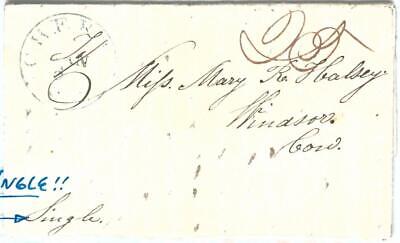 25
Miss. Mary R. Halsey
Windsor.
Con.
NGLE!!
Single.